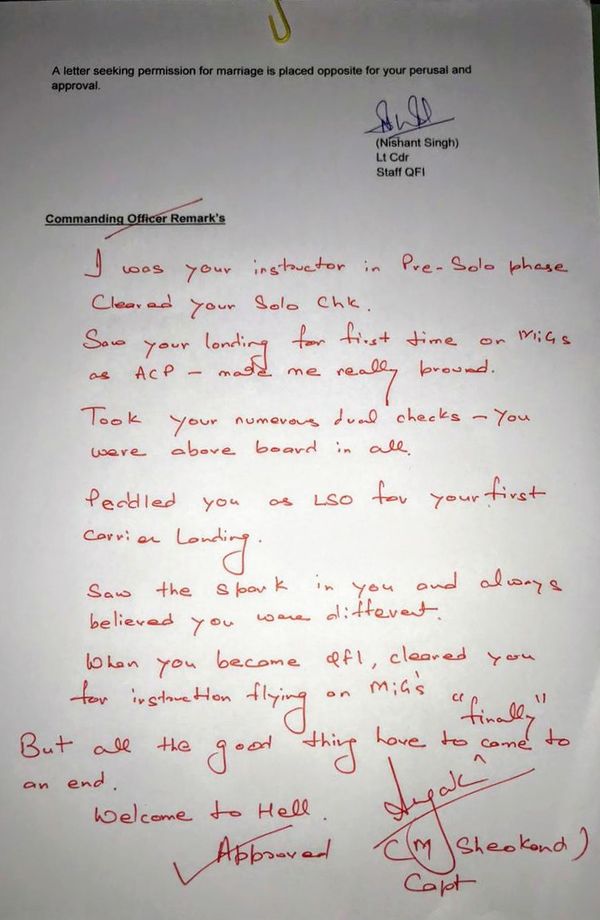 A letter seeking permission for marriage is placed opposite for your perusal and
approval.
(Nishant Singh)
Lt Cdr
Staff QFI
Commanding Officer Remark's
I was your instructor in Pre-Solo phase
Cleared your Solo Chk.
Saw your landing for first time on MiGs
as ACP - made me really pround.
Took your numerous dual checks - You
were above board in all.
Peddled you as LSO for your first
Carrier Landing.
Saw the spark in you and always
believed you were different.
When you become QFI, cleared you
for instruction flying on MiG's
But all the good thing have to "finally" come to
an end.
Welcome to Hell.
Approved
(M Sheokand)
Capt